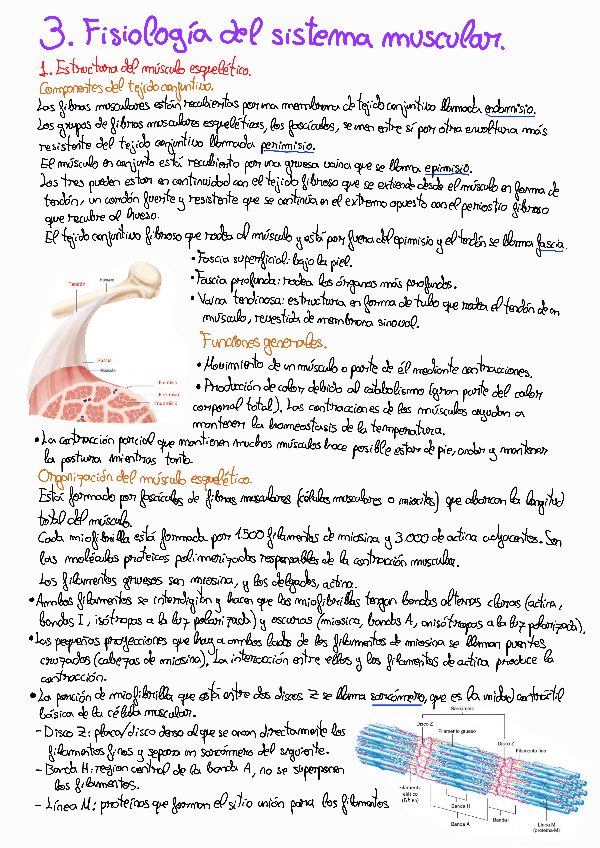 3. Fisiología del sistema muscular.
1. Estructura del músculo esquelético.
Componentes del tejido conjuntivo.
Las fibras musculares están recubiertas por una membrana de tejido conjuntivo llamada endomisio.
Los grupos de fibras musculares esqueléticas, los fascículos, se unen entre sí por otra envoltura más
resistente del tejido conjuntivo llamada perimisio.
El músculo en conjunto está recubierto por una gruesa vaina que se llama epimisio.
Los tres pueden estar en continuidad con el tejido fibroso que se extiende desde el músculo en forma de
tendón, un cordón fuerte y resistente que se continúa en el extremo opuesto con el periostio fibroso
que recubre al hueso.
El tejido conjuntivo fibroso que rodea al músculo y está por fuera del epimisio y el tendón se llama fascia.
• Fascia superficial: bajo la piel.
• Fascia profunda: rodea los órganos más profundos.
• Vaina tendinosa: estructura en forma de tubo que rodea el tendón de un
músculo, revestida de membrana sinovial.
Tendón
Húmero
Fascia
Músculo
Epimisio
Perimisio
Endomisio
Funciones generales.
• Movimiento de un músculo o parte de él mediante contracciones.
• Producción de calor debido al catabolismo (gran parte del calor
corporal total). Las contracciones de los músculos ayudan a
mantener la homeostasis de la temperatura.
• La contracción parcial que mantienen muchos músculos hace posible estar de pie, andar y mantener
la postura mientras tanto.
Organización del músculo esquelético.
Está formado por fascículos de fibras musculares (células musculares o miocitos) que abarcan la longitud
total del músculo.
Cada miofibrilla está formada por 1500 filamentos de miosina y 3.000 de actina adyacentes. Son
las moléculas proteicas polimerizadas responsables de la contracción muscular.
Los filamentos gruesos son miosina, y los delgados, actina.
• Ambos filamentos se interdigitan y hacen que las miofibrillas tengan bandas alternas claras (actina,
bandas I, isótropas a la luz polarizada) y oscuras (miosina, bandas A, anisótropas a la luz polarizada).
• Las pequeñas proyecciones que hay a ambos lados de los filamentos de miosina se llaman puentes
cruzados (cabezas de miosina). La interacción entre ellos y los filamentos de actina produce la
contracción.
• La porción de miofibrilla que está entre dos discos Z se llama sarcómero, que es la unidad contráctil
básica de la célula muscular.
- Disco Z: placa/disco denso al que se anan directamente los
filamentos finos y separa un sarcómero del siguiente.
- Banda H: región central de la banda A, no se superponen
los filamentos.
- Línea M: proteínas que forman el sitio unión para los filamentos
Sarcómero
Disco Z
Filamento grueso
Disco Z
Filamento fino
Filamento
elástico
(titina)
Banda H
Banda A
Banda I
Línea M
(proteína-M)